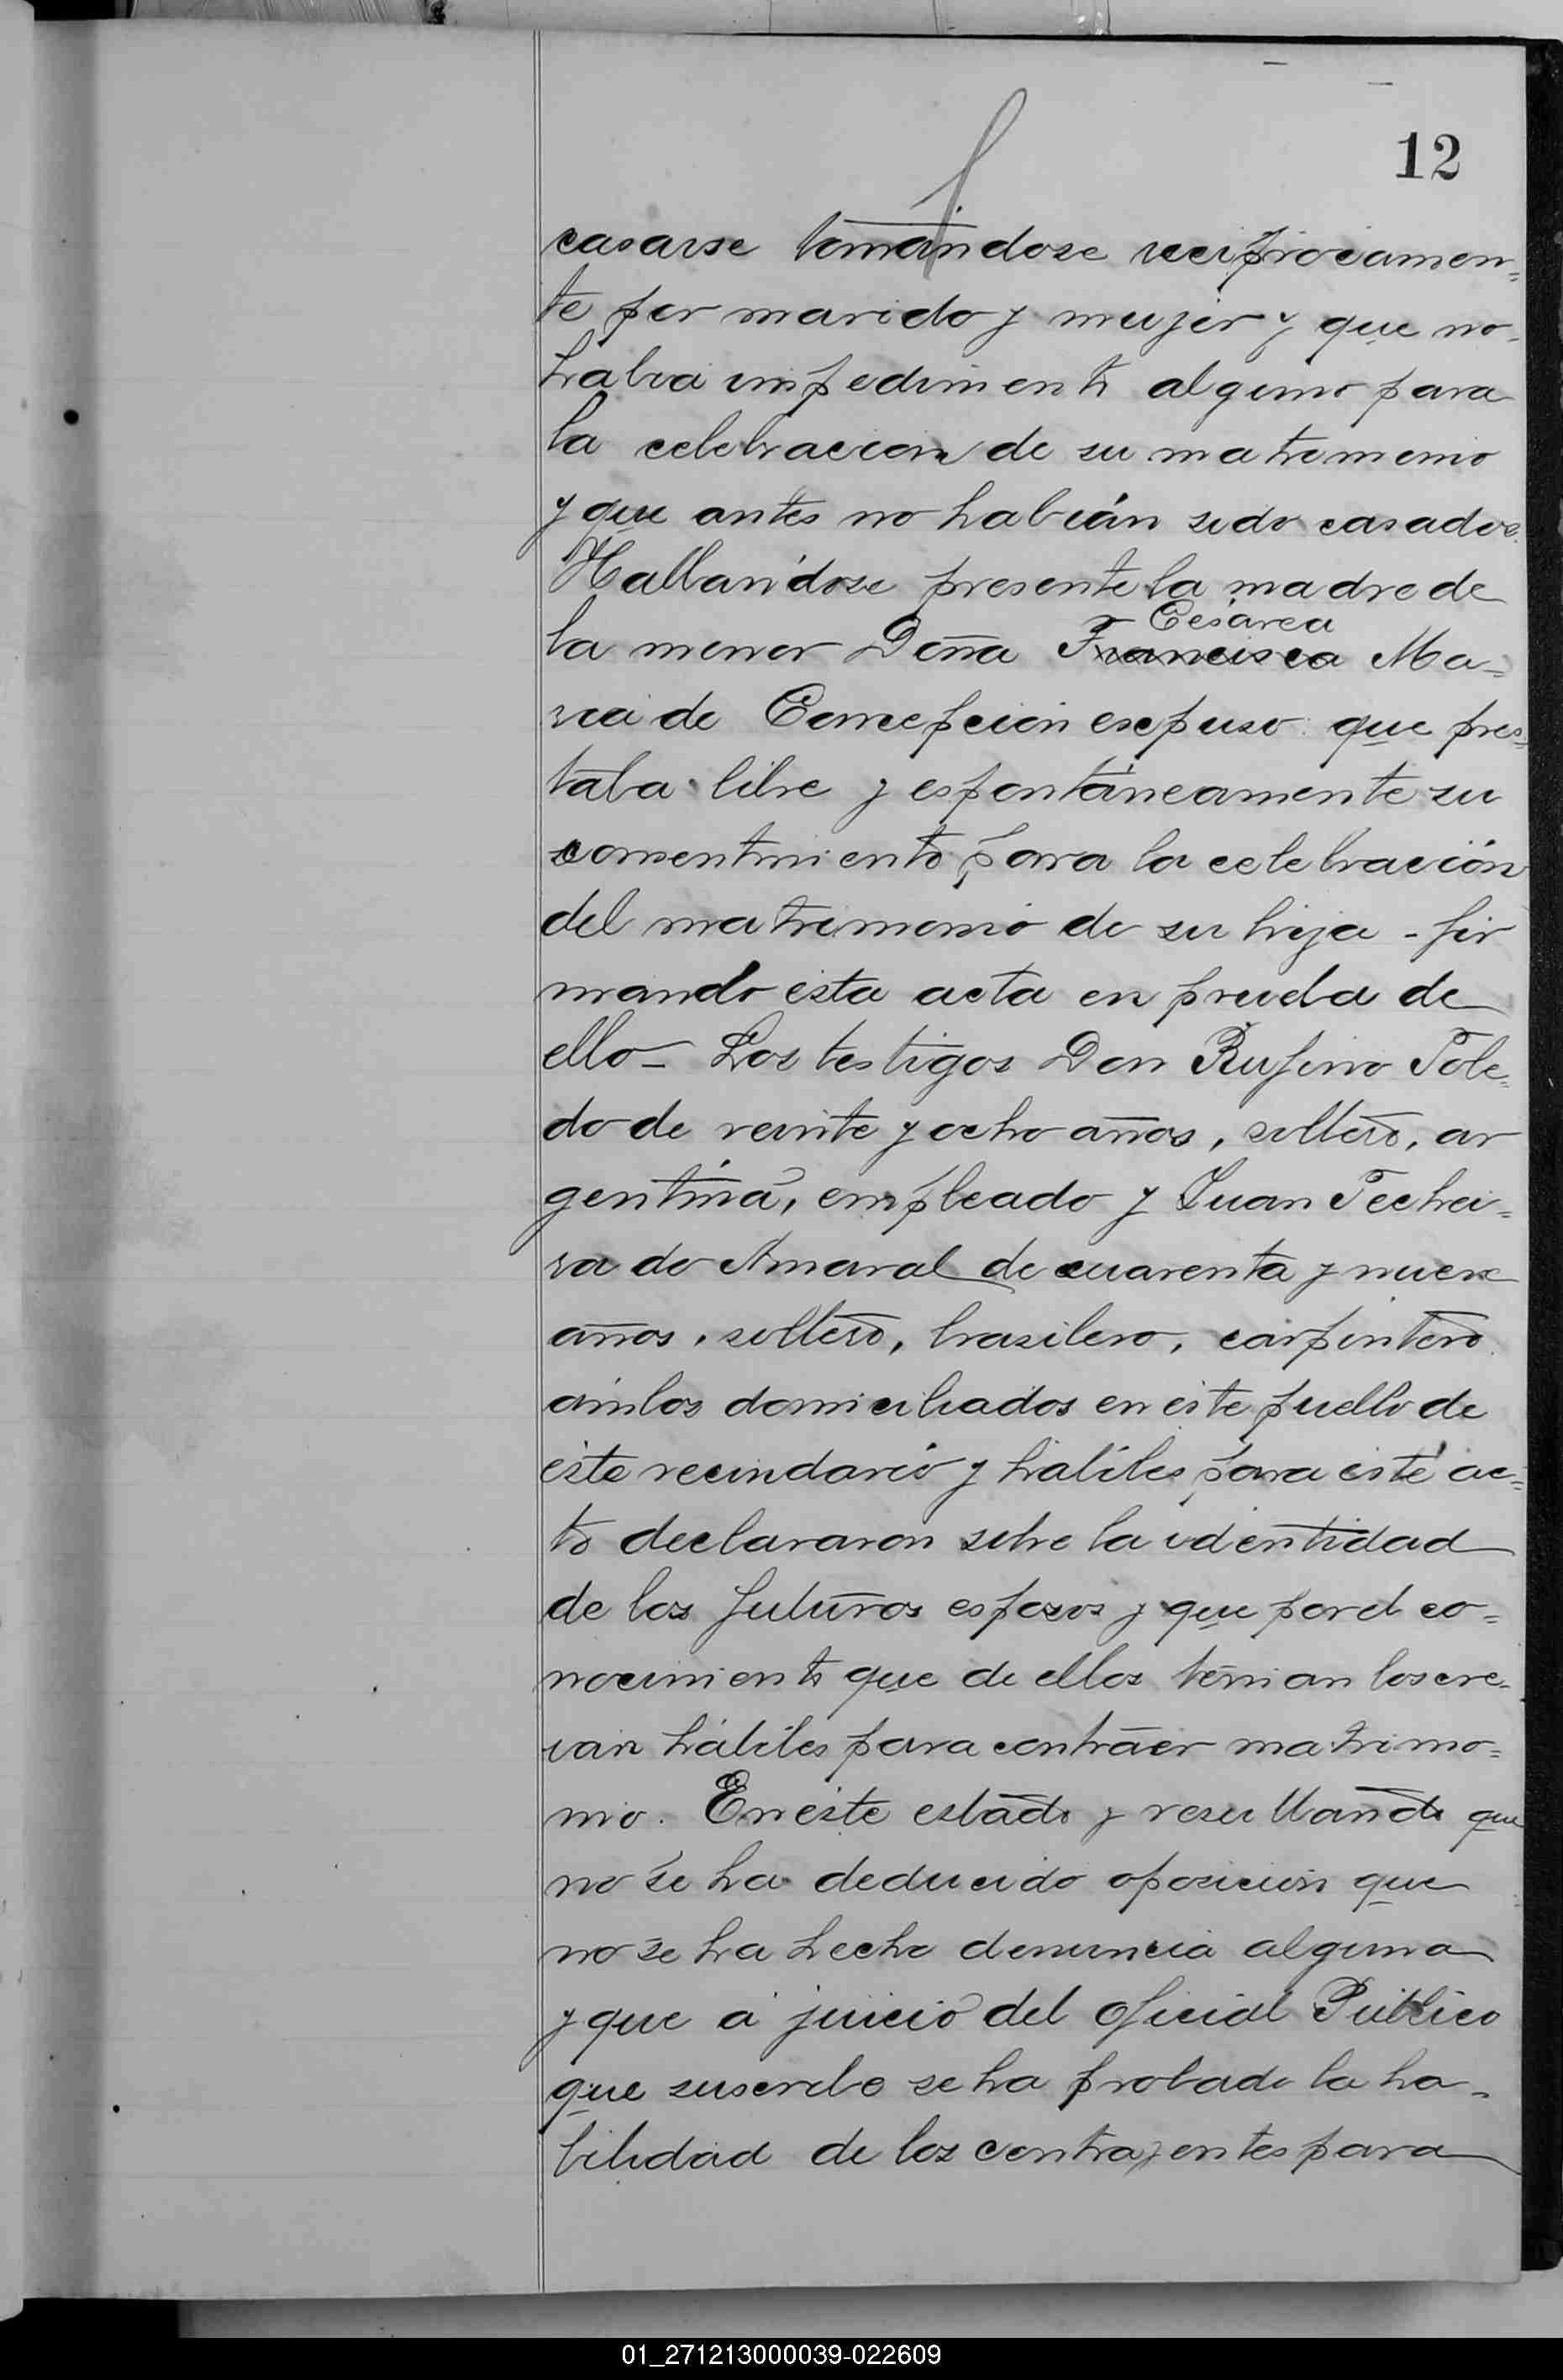 12
casarse tomándose reciprocamen=
te por marido y mujer y que no
habia impedimento alguno para
la celebracion de su matrimonio
y que antes no habián sido casados.
Hallandose presente la madre de
Cesárea
la menor Doña Francisca Ma=
ria de Concepcion expuso que pres=
taba libre y espontáneamente su
consentimiento para la celebración
del matrimonio de su hija - fir
mando esta acta en prueba de
ello - Los testigos Don Rufino Tole=
do de veinte y ocho años, soltero, ar
gentina, empleado y Juan Techei=
ra do Amaral de cuarenta y nueve
años, soltero, brasilero, carpintero
ambos domiciliados en este pueblo de
este vecindario y habiles para este ac=
to declararon sobre la identidad
de los futuros esposos y que por el co=
nocimiento que de ellos tenian los cre=
ian hábiles para contraer matrimo=
nio. En este estado y resultando que
no se ha deducido oposicion que
no se ha hecho denuncia alguna
y que á juicio del oficial Público
que suscribe se ha probado la ha=
bilidad de los contrayentes para
01_271213000039-022609